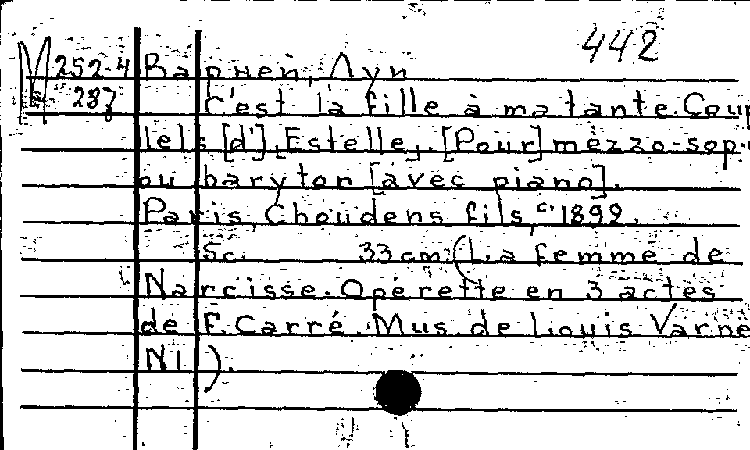 442
М 252-4 Варней, Луи
287 C'est la fille à ma tante. Coup
lets [d'] Estelle,. [Pour] mezzo-sop.
ou baryton [avec piano].
Paris, Choudens fils, c. 1892.
Sc. 33 cm. (La femme de
Narcisse. Opérette en 3 actes
de F. Carré. Mus. de Louis Varne
N1 ).